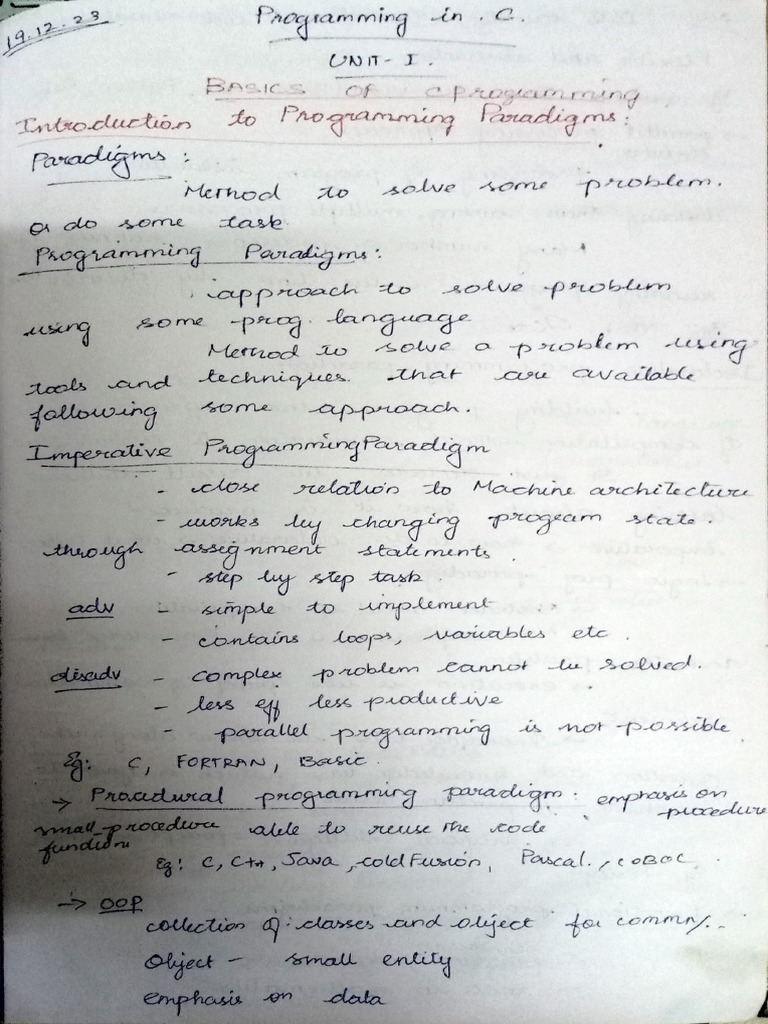 19.12.23
Programming in C.
UNIT-I.
BASICS OF C programming
Introduction to Programming Paradigms:
Paradigms:
Method to solve some problem.
or do some task.
Programming Paradigms:
approach to solve problem
using some prog. language
Method to solve a problem using
tools and techniques that are available
following some approach.
Imperative Programming Paradigm
- close relation to Machine architecture
- works by changing program state.
through assignment statements.
- step by step task.
adv - simple to implement
- contains loops, variables etc.
disadv - complex problem cannot be solved.
- less eff less productive
- parallel programming is not possible.
Eg: C, FORTRAN, Basic.
→ Procedural programming paradigm: emphasis on
procedure
small procedure able to reuse the code
function
Eg: C, C++, Java, coldFusion, Pascal., COBOL.
→ OOP
collection of classes and object for
Object - small entity
emphasis on data